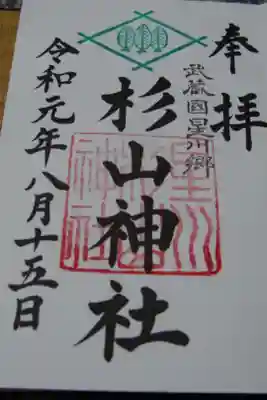 奉拝
武蔵國星川郷
杉山神社
令和元年八月十五日